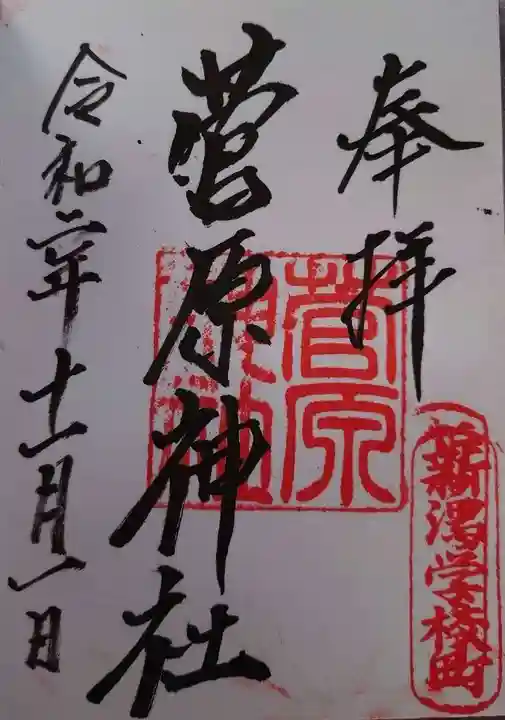 奉拝
菅原神社
菅原神社
新潟学校町
令和二年十一月一日